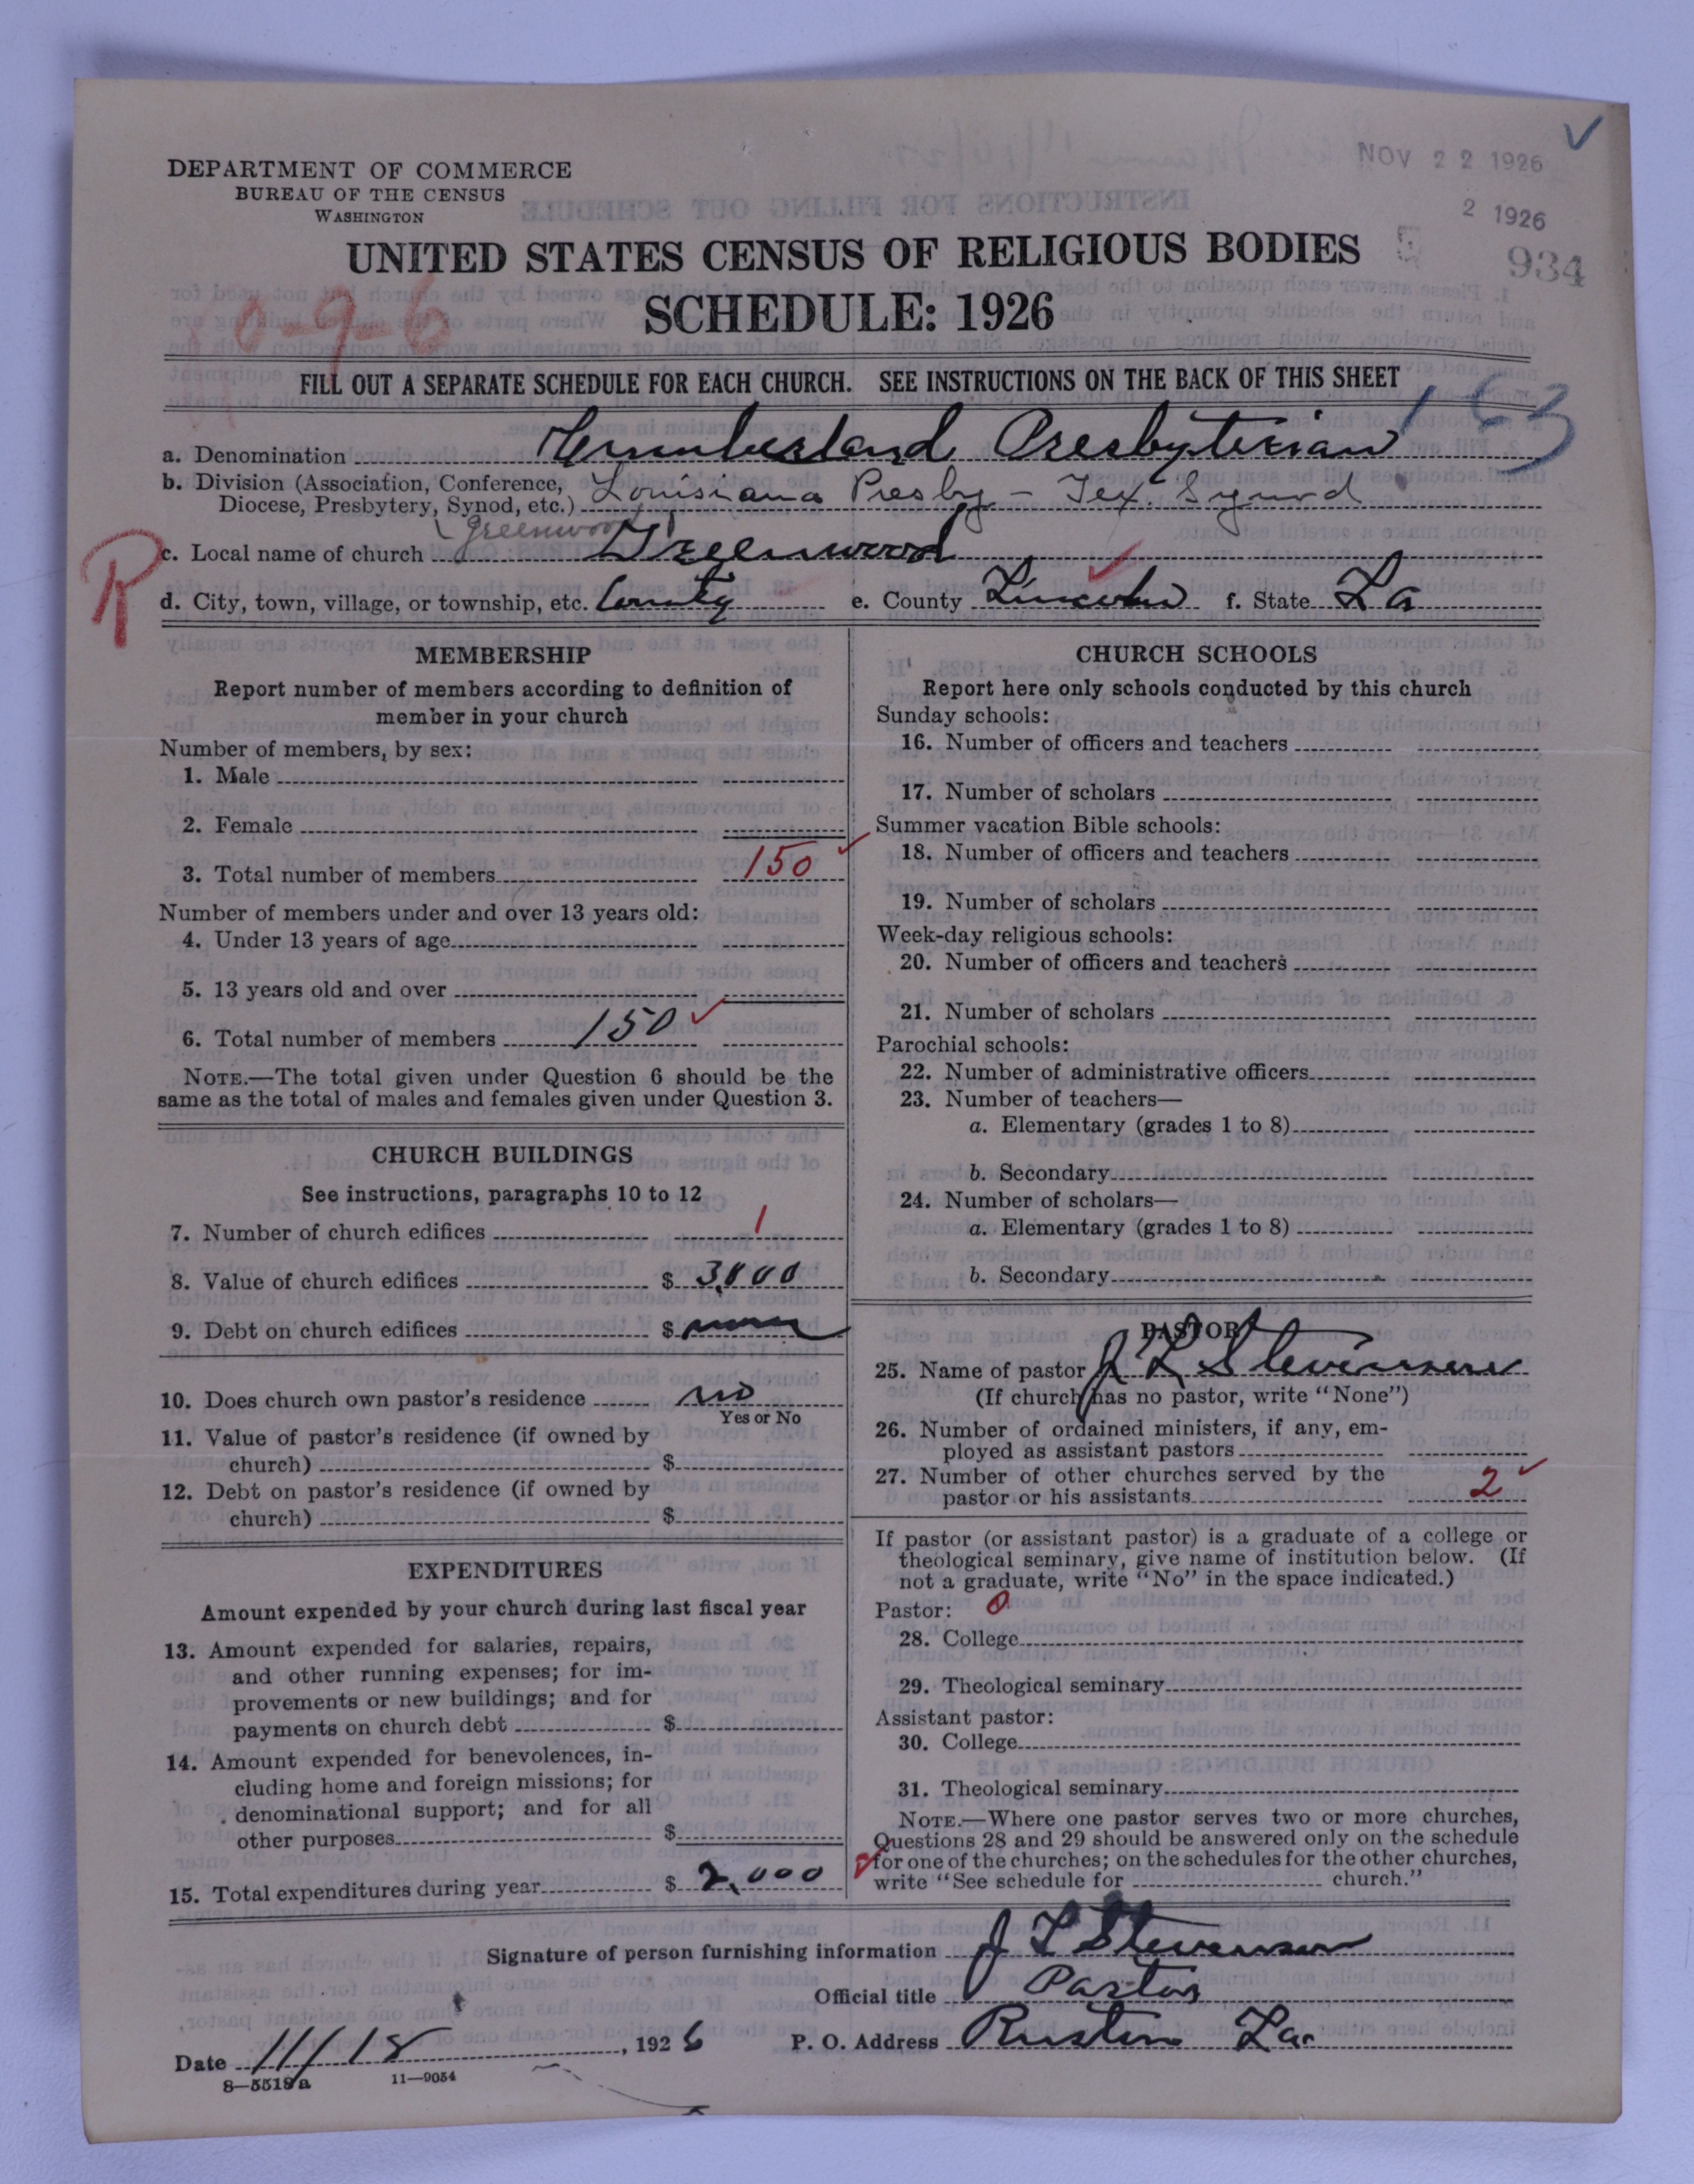 NOV 22 1926
2 1926
934
DEPARTMENT OF COMMERCE
BUREAU OF THE CENSUS
WASHINGTON
UNITED STATES CENSUS OF RELIGIOUS BODIES
SCHEDULE: 1926
0-9-6
FILL OUT A SEPARATE SCHEDULE FOR EACH CHURCH. SEE INSTRUCTIONS ON THE BACK OF THIS SHEET
163
a. Denomination Cumberland Presbyterian
b. Division (Association, Conference, Diocese, Presbytery, Synod, etc.) Louisiana Presby - Tex. Synod
Greenwood
c. Local name of church Greenwood
R
d. City, town, village, or township, etc. County e. County Lincoln f. State La
MEMBERSHIP
Report number of members according to definition of
member in your church
Number of members, by sex:
1. Male
2. Female
3. Total number of members 150
Number of members under and over 13 years old:
4. Under 13 years of age
5. 13 years old and over
6. Total number of members 150
NOTE.—The total given under Question 6 should be the
same as the total of males and females given under Question 3.
CHURCH BUILDINGS
See instructions, paragraphs 10 to 12
7. Number of church edifices 1
8. Value of church edifices $ 3,000
9. Debt on church edifices $ none
10. Does church own pastor's residence no
Yes or No
11. Value of pastor's residence (if owned by
church) $
12. Debt on pastor's residence (if owned by
church) $
EXPENDITURES
Amount expended by your church during last fiscal year
13. Amount expended for salaries, repairs,
and other running expenses; for im-
provements or new buildings; and for
payments on church debt $
14. Amount expended for benevolences, in-
cluding home and foreign missions; for
denominational support; and for all
other purposes $
15. Total expenditures during year $ 2,000
CHURCH SCHOOLS
Report here only schools conducted by this church
Sunday schools:
16. Number of officers and teachers
17. Number of scholars
Summer vacation Bible schools:
18. Number of officers and teachers
19. Number of scholars
Week-day religious schools:
20. Number of officers and teachers
21. Number of scholars
Parochial schools:
22. Number of administrative officers
23. Number of teachers—
a. Elementary (grades 1 to 8)
b. Secondary
24. Number of scholars—
a. Elementary (grades 1 to 8)
b. Secondary
PASTOR
25. Name of pastor J L Stevenson
(If church has no pastor, write "None")
26. Number of ordained ministers, if any, em-
ployed as assistant pastors
27. Number of other churches served by the
pastor or his assistants 2
If pastor (or assistant pastor) is a graduate of a college or
theological seminary, give name of institution below. (If
not a graduate, write "No" in the space indicated.)
Pastor: 0
28. College
29. Theological seminary
Assistant pastor:
30. College
31. Theological seminary
NOTE.—Where one pastor serves two or more churches,
Questions 28 and 29 should be answered only on the schedule
for one of the churches; on the schedules for the other churches,
write "See schedule for church."
Signature of person furnishing information J L Stevenson
Official title Pastor
Date 11/18, 1926 P. O. Address Ruston La.
8—5518a 11—9054